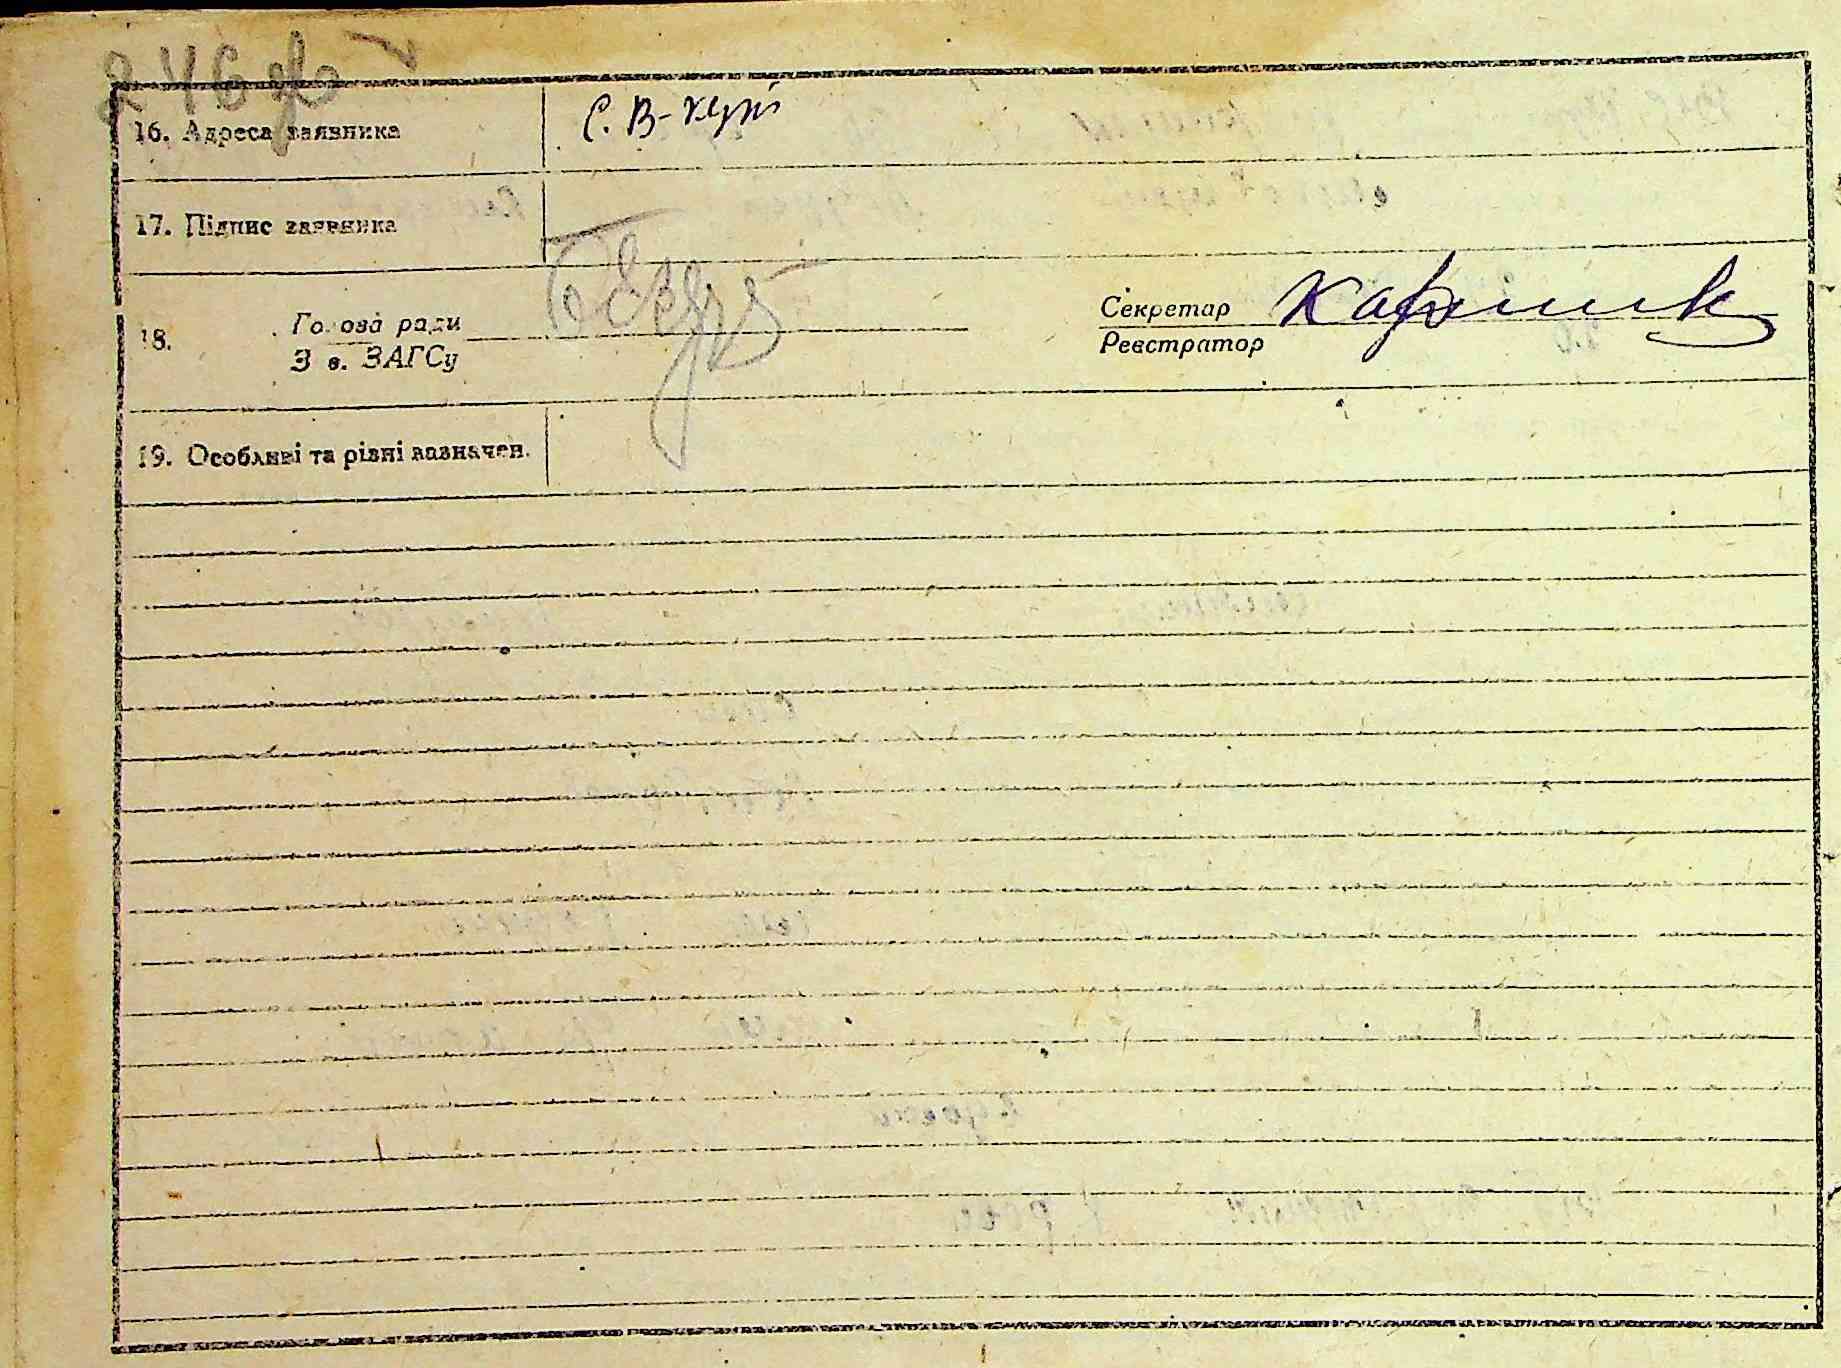 246
16. Адреса заявника С. В-Кути
17. Підпис заявника
18. Голова ради Секретар
Зав. ЗАГСу Реєстратор
19. Особливі та різні зазначен.